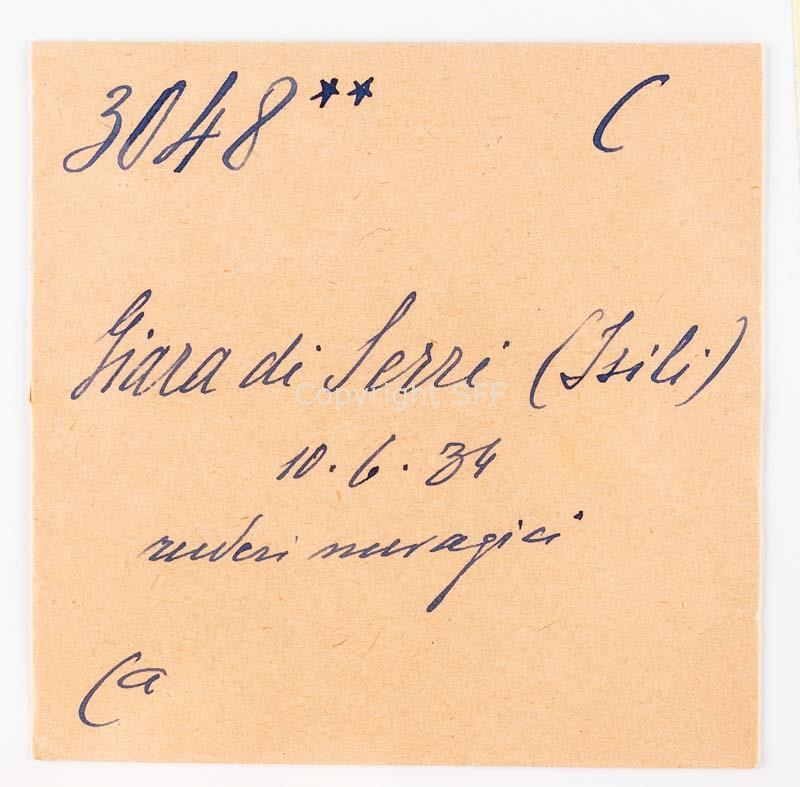 3048** C
Giara di Serri (Isili)
Copyright SFF
10.6.34
ruderi nuragici
Ca